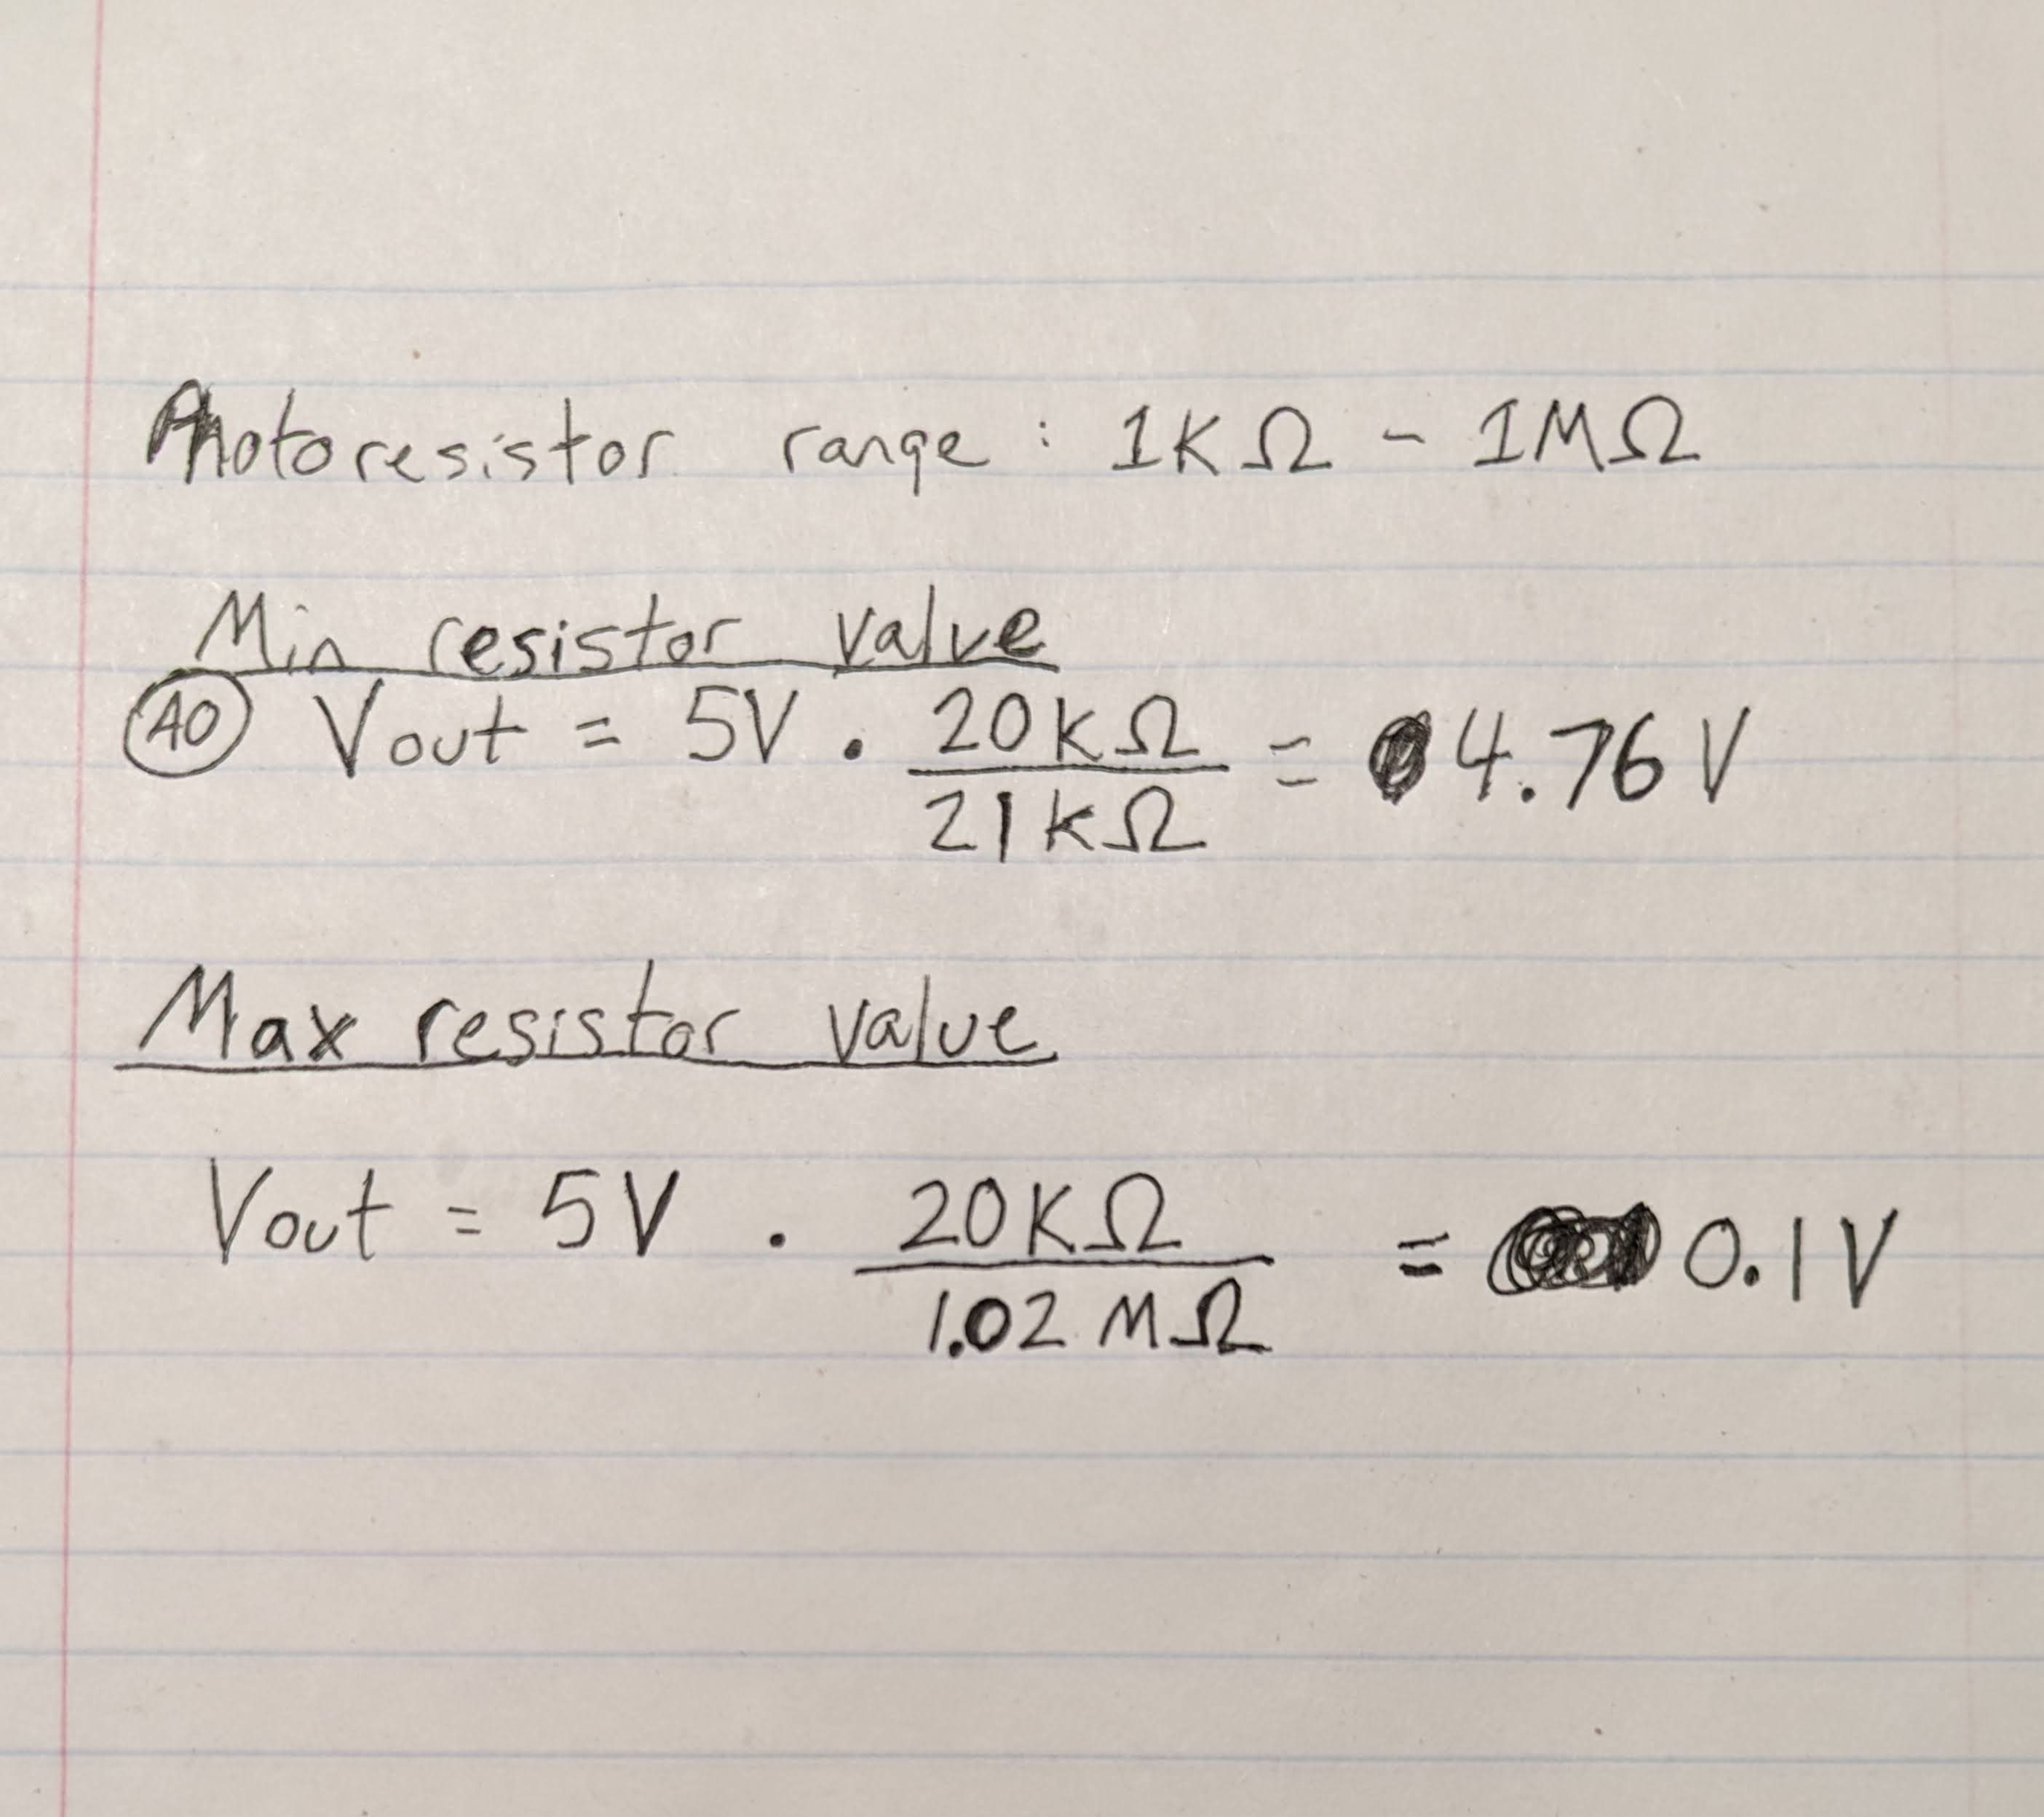 Photoresistor range : 1KΩ - 1MΩ
Min resistor value
A0 Vout = 5V . 20KΩ / 21KΩ = 4.76 V
Max resistor value
Vout = 5V . 20KΩ / 1.02 MΩ = 0.1 V